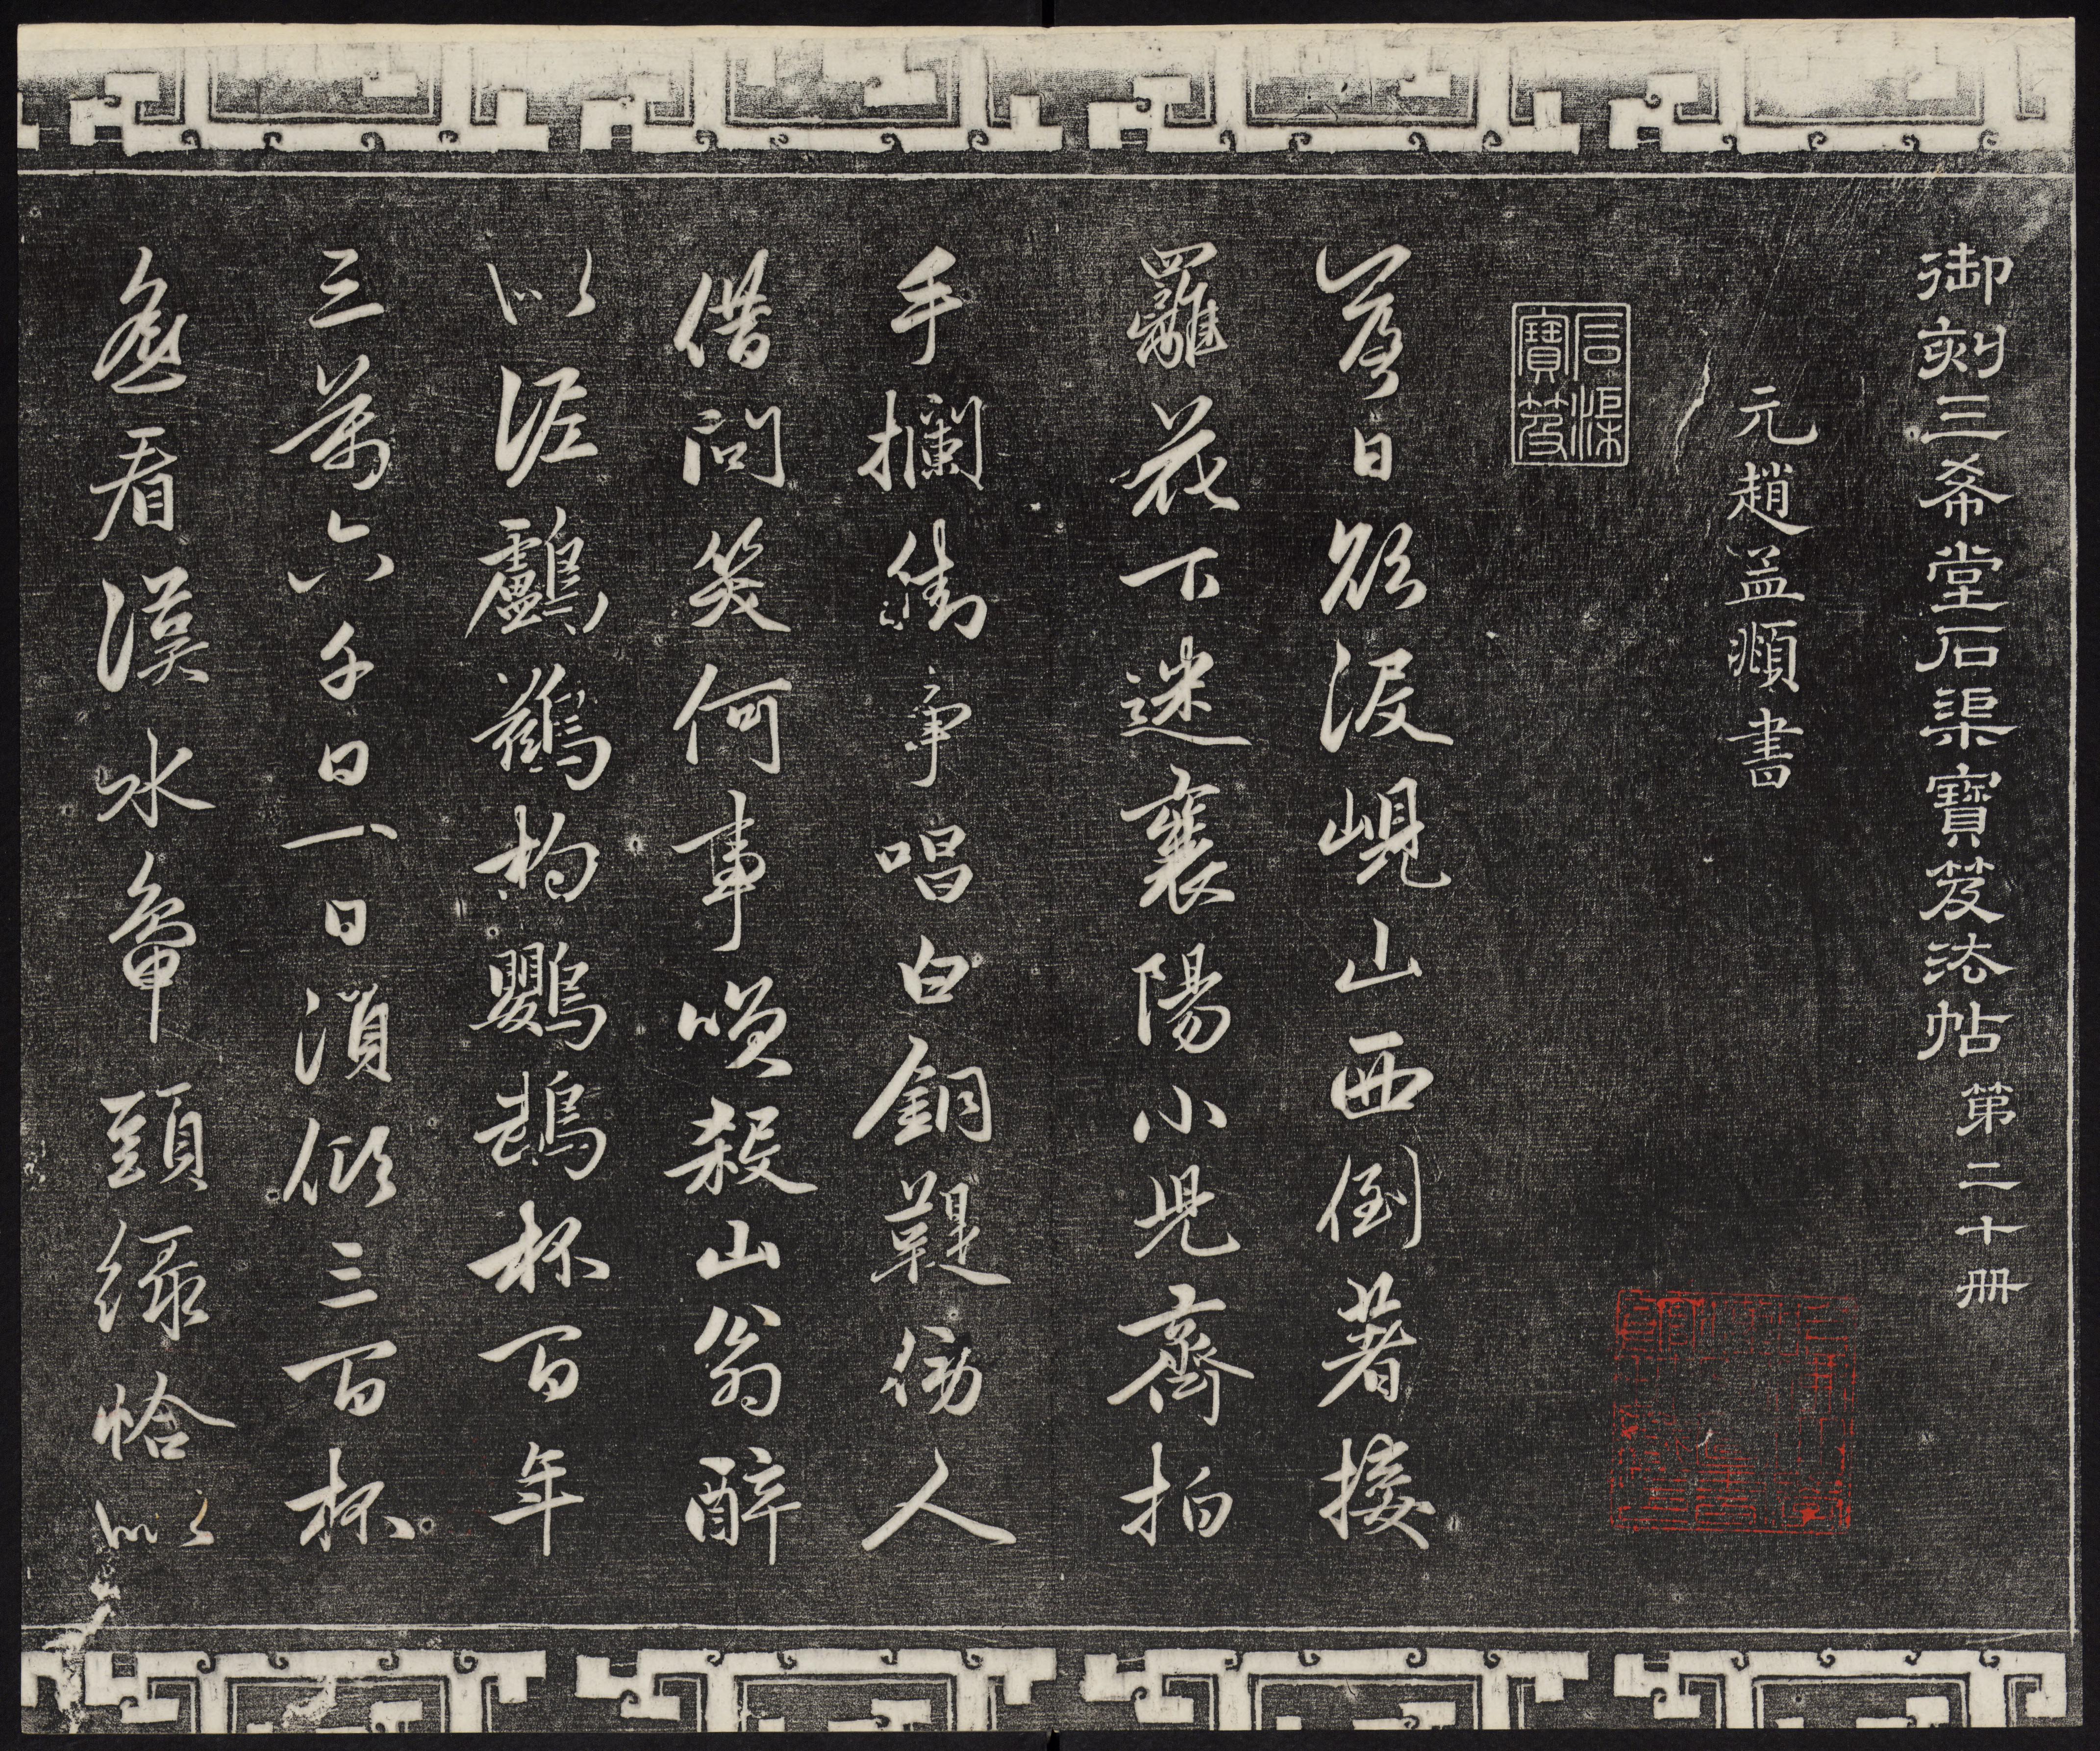 御刻三希堂石渠寶笈法帖 第二十冊
元趙孟頫書
石渠寶笈
落日欲没峴山西倒著接
䍦花下迷襄陽小兒齊拍
手攔街爭唱白銅鞮傍人
借問笑何事咲殺山翁醉
似泥鸕鷀杓鸚鵡杯百年
三萬六千日一日湏傾三百杯
遥看漢水鴨頭緑恰似